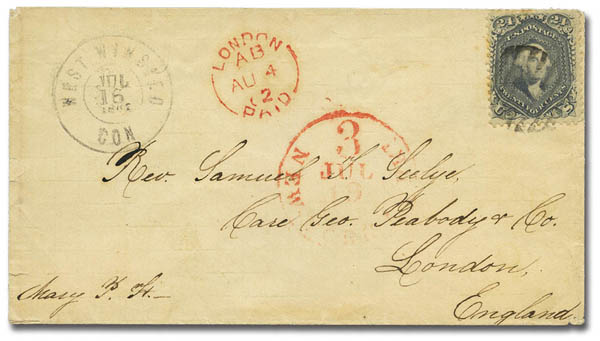 WEST WINSTED
JUL
16
CON
LONDON
AB
AU 4
62
PAID
24 24
U.S. POSTAGE
3
JUL
NEW
Rev. Samuel H. Seelye,
Care Geo. Peabody & Co.
London,
England.
Mary F. H.